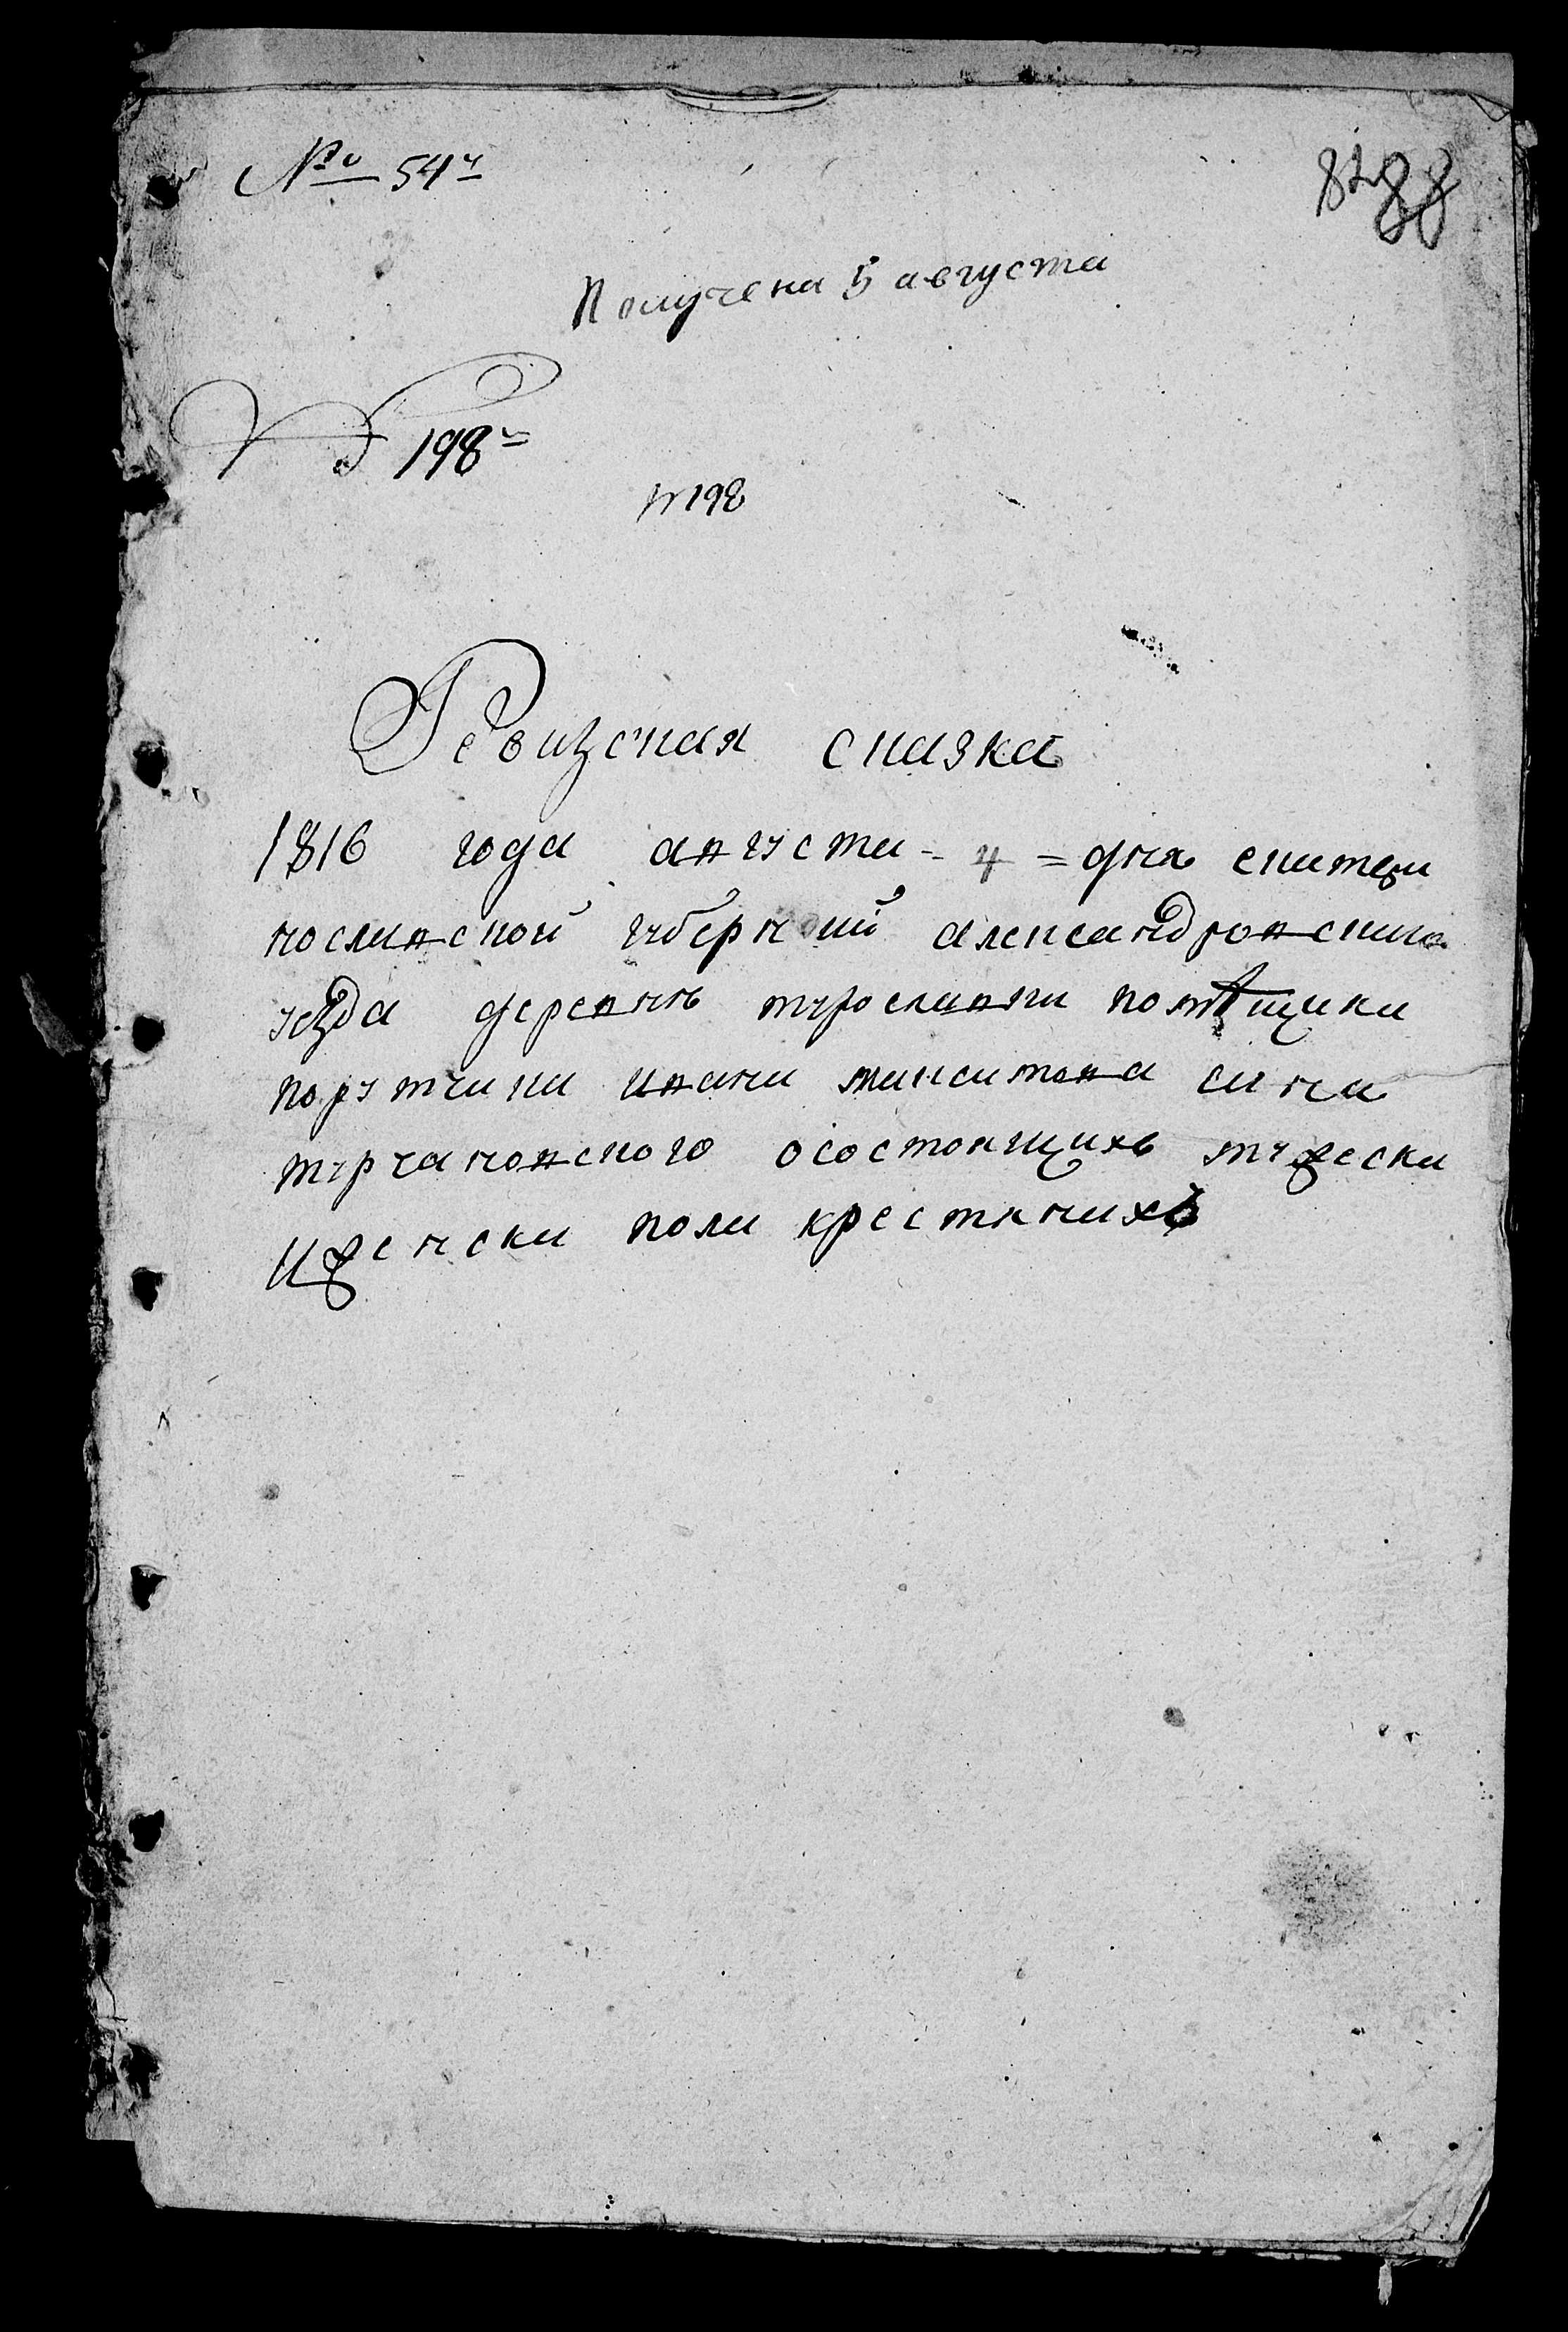 № 54й
82 88
Получена 5 августа
№ 198й
№ 198
Ревизская сказка
1816 года августа = 4 = дня екатери
нославской губернии александровскаго
уезда деревни мирославки помѣщика
порутчика ивана максимова сина
турчановского осостоящихъ мужеска
ижен ска пола крестянихъ